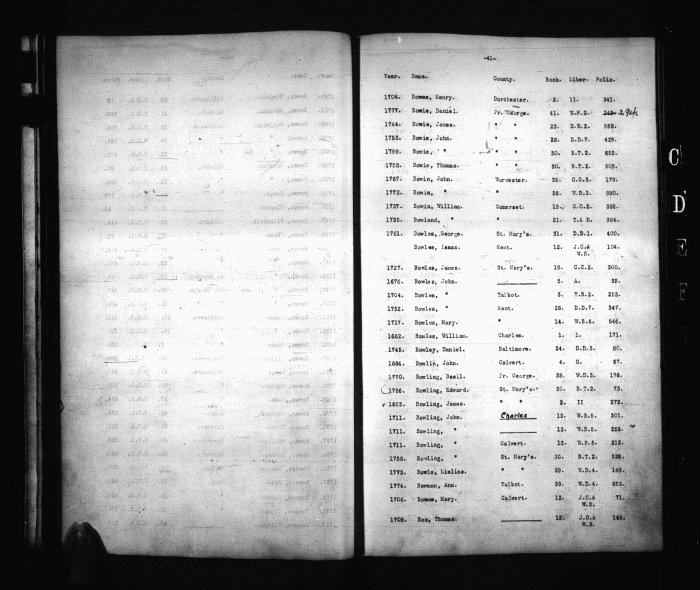 -41-
Year. Name. County. Book. Liber. Folio.
1704. Bowes, Henry. Dorchester. 2. 11. 341.
1777. Bowie, Daniel. Pr. George. 41. W.F.2. 294.
1744. Bowie, James. " " 23. D.D.2. 592.
1753. Bowie, John. " " 28. D.D.7. 429.
1759. Bowie, " " " 30. B.T.2. 692.
1758. Bowie, Thomas. " " 30. B.T.2. 505.
1767. Bowin, John. Worcester. 35. C.G.3. 179.
1772. Bowin, " " 38. W.D.3.
1727. Bowin, William. Somerset. 19. C.C.2. 382.
1735. Bowland, " " 21. T.& D. 304.
1761. Bowles, George. St. Mary's. 31. D.D.1. 400.
Bowles, Isaac. Kent. 12. J.C.& 104.
W.B.
1727. Bowles, James. St. Mary's. 19. C.C.2. 300.
1676. Bowles, John. 5. A. 39.
1704. Bowles, " Talbot. 3. T.B.2. 253.
1752. Bowles, " Kent. 28. D.D.7. 347.
1717. Bowles, Mary. " 14. W.B.6. 546.
1662. Bowles, William. Charles. 1. 1. 171.
1745. Bowley, Daniel. Baltimore. 24. D.D.3. 80.
1684. Bowlin, John Calvert. 4. G. 67.
1770. Bowling, Basil. Pr. George. 38. W.D.3. 176.
1756. Bowling, Edward. St. Mary's. 30. B.T.2. 73.
1693. Bowling, James. " " 2. II 272.
1711. Bowling, John. Charles 13. W.B.5. 301.
1711. Bowling, " 13. W.B.5. 253.
1711. Bowling, " Calvert. 13. W.B.5. 212.
1758. Bowling, " St. Mary's. 30. B.T.2. 528.
1773. Bowls, " " 39. W.D.4. 148.
1774. Bowmen, Ann. Talbot. 39. W.D.4. 653.
1706. Bowne, Mary. Calvert. 12. J.C.& 71.
W.B.
1708. Box, Thomas. 12. J.C.& 169.
W.B.
C
D
E
F